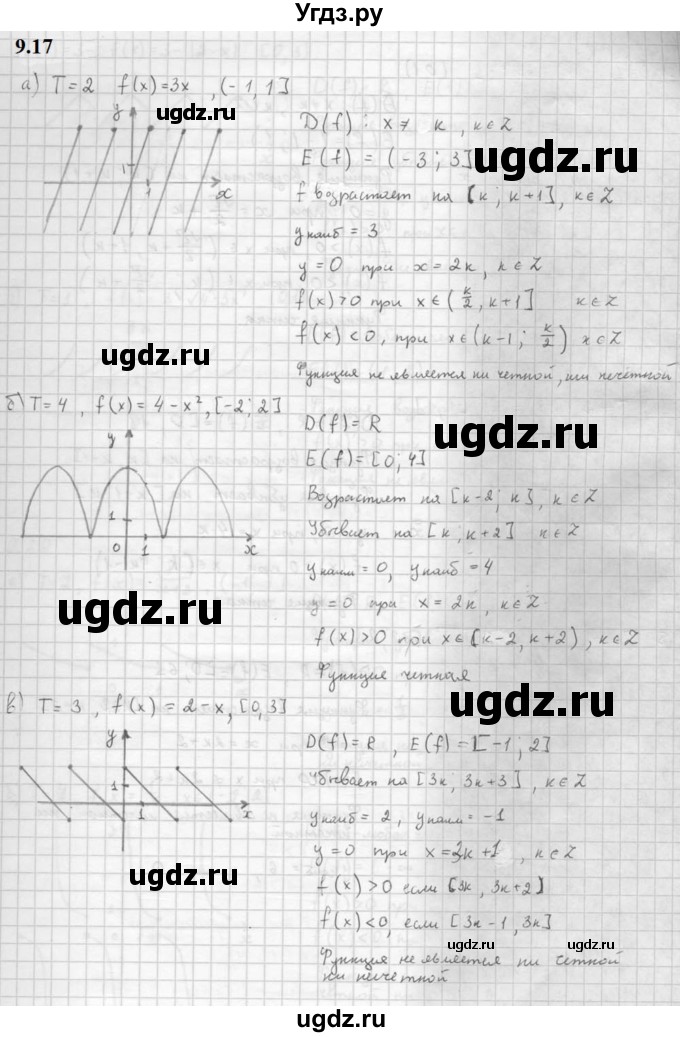 Угдз.ру
9.17
а) T=2 f(x)=3x , (-1, 1]
ugdz.ru
y
1
1
x
D(f) : x≠ к , к∈Z
E(f) = (-3; 3]
ugdz.ru
f возрастает на [к; к+1], к∈Z
yнаиб = 3
y=0 при x=2к, к∈Z
f(x)>0 при x∈(к/2, к+1] к∈Z
f(x)<0, при x∈(к-1; к/2) x∈Z
ugdz.ru
Функция не является ни четной, ни нечетной
б) T=4 , f(x)= 4-x², [-2; 2]
y
1
0
1
x
D(f)= R
ugdz.ru
E(f)=[0; 4]
Возрастает на [к-2; к], к∈Z
Убывает на [к; к+2] к∈Z
yнаим = 0, yнаиб = 4
ugdz.ru
y=0 при x=2к, к∈Z
f(x)>0 при x∈[к-2, к+2), к∈Z
Функция четная
ugdz.ru
в) T= 3 , f(x) = 2-x, [0,3]
y
1
1
x
D(f)=R , E(f)=[-1; 2]
Убывает на [3к; 3к+3], к∈Z
yнаиб = 2, yнаим = -1
y=0 при x=3к+1, к∈Z
ugdz.ru
f(x)>0 если [3к, 3к+2]
f(x)<0, если [3к-1, 3к]
ugdz.ru
ugdz.ru
Функция не является ни четной
ни нечетной
ugdz.ru